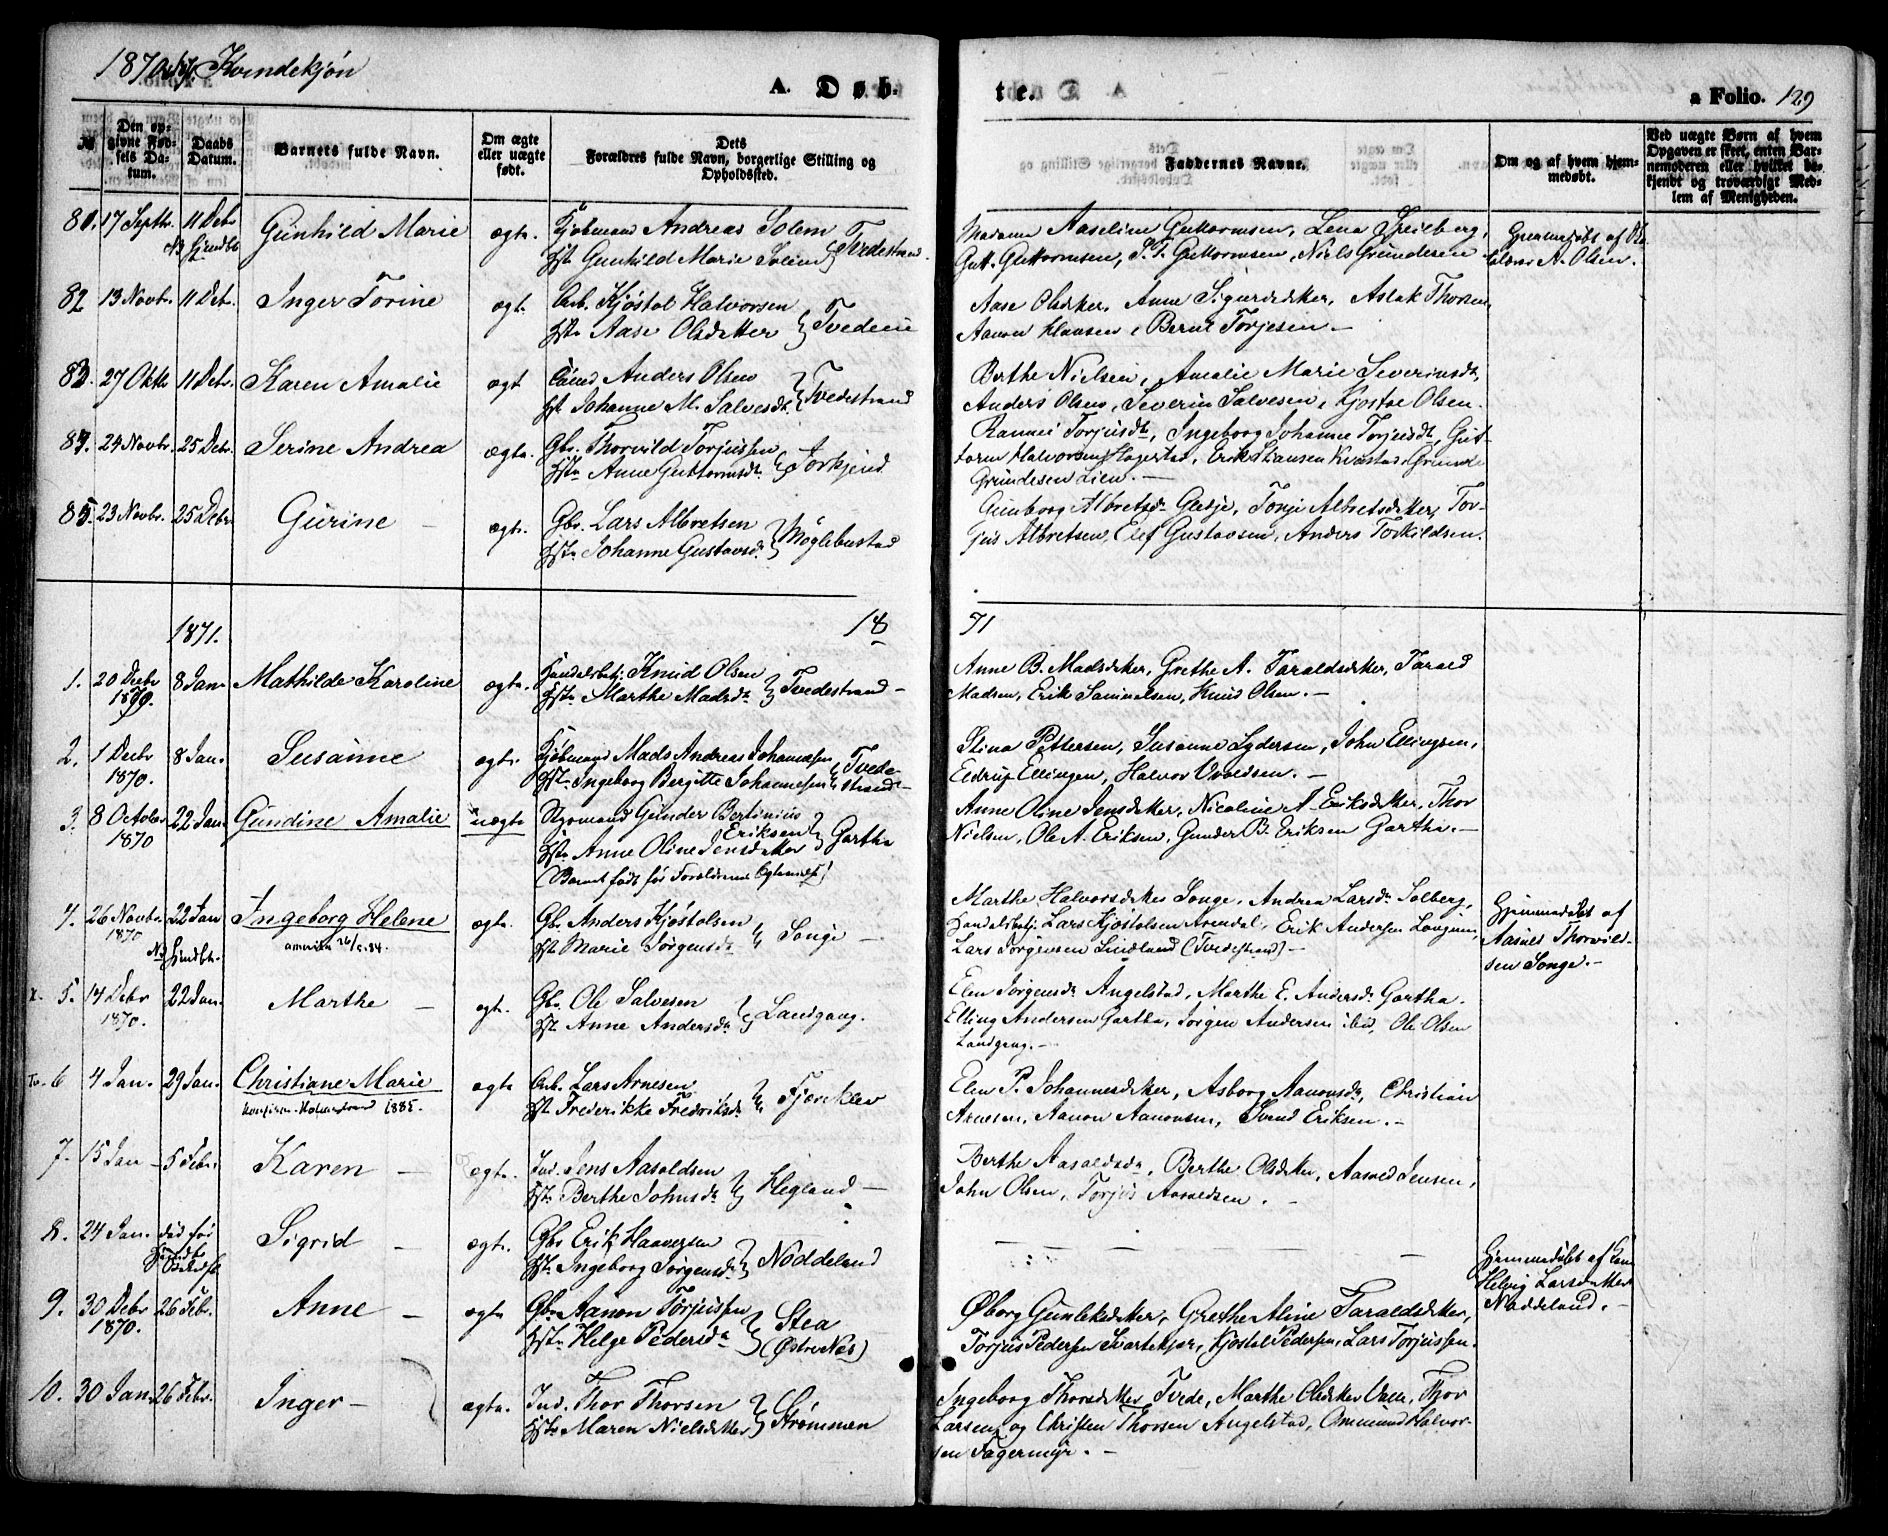 1870 og 71 Kvindekjøn
A. Døb-
te.
a Folio. 129
№
Den opgivne Fødsels Datum.
Daabs Datum.
Barnets fulde Navn.
Om ægte eller uægte født.
Dets Forældres fulde Navn, borgerlige Stilling og Opholdssted.
Faddernes Navne.
Om og af hvem hjemmedøbt.
Ved uægte Børn af hvem Opgaven er skeet, enten Barnemoderen eller hvilket bekjendt og troværdigt Medlem af Menigheden.
81. 17 Septbr. 11 Debr Gunhild Marie ægte. Kjøbmand Andreas Solem
Hst. Gunhild Marie Solem Tvedestrand.
Madame Aaseline Guttormsen, Lena Speilberg,
Gutt. Guttormsen, S. T. Guttormsen, Niels Grundesen
Hjemmedøbt af
A. Olsen.
82 13 Novbr. 11 Debr. Inger Torine ægt. Arb. Kjøstol Halvorsen
Hst. Aase Olsdatter Tvedene
Aase Olsdatter, Anne Sigurdsdatter, Aslak Thorsen,
Aanon Klausen, Bernt Torjesen. –
83. 27 Oktbr 11 Debr. Karen Amalie ægt Anders Olsen
Hst Johanne M. Salvesdr. Tvedestrand
Berthe Nielsen, Amalie Marie Severinsdr,
Anders Olsen, Severin Salvesen, Kjøstol Olsen.
84. 24 Novbr. 25 Debr. Serine Andrea ægte. Gbr. Thorvild Torjussen
Hst. Anne Guttormsdr. Torkjend
Rannei Torjusdr, Ingeborg Johanne Torjusdr, Gut-
torm Halvorsen Hagestad, Erik Hansen Kvastad, Grunde
Grundesen Lien. –
85. 23 Novbr. 25 Debr Gurine – ægte. Gbr. Lars Albretsen
Hst. Johanne Gustavsdr. Møglebustad
Gunborg Albretsdr Gledje, Torje Albretsdatter, Tor-
jus Albretsen, Elef Gustavsen, Anders Torkildsen.
1871.
18
71
1. 20 Debr 8 Jan. Mathilde Karoline ægte. Handelsbetj. Knud Olsen
Hst. Marthe Madsdr Tvedestrand –
Anne B. Madsdatter, Grethe A. Taraldsdatter, Tarald
Madsen, Erik Samuelsen, Knud Olsen. –
2. 1 Debr 8 Jan. Susanne ægte. Kjøbmand Mads Andreas Johannesen
1870. Hst. Ingeborg Bergitte Johannesen Tvede-
strand –
Stina Pettersen, Susanne Lydersen, John Ellingsen,
Eldrup Ellingsen, Halvor Evensen. –
3. 8 October 22 Jan Gundine Amalie uægte Styrmand Gunder Bertinius
1870 Eriksen
Hst. Anne Oline Jensdatter Gartha
(Barnet født før Forældrenes Ægteskab)
Anne Oline Jensdatter, Nicoline A. Eriksdatter, Thor
Nielsen, Ole A. Eriksen, Gunder B. Eriksen Gartha. –
4. 26 Novbr 22 Jan Ingeborg Helene ægte. Gbr. Anders Kjøstolsen
1870 Hst Marie Jørgensdr Songe –
Marthe Halvorsdatter Songe, Andrea Larsdr Solberg,
Handelsbetj. Lars Kjøstolsen Arendal, Erik Andersen
Lars Jørgensen Lindland (Tvedestrand) –
Hjemmedøbt af
Aasuld Thorvild-
sen Songe. –
x. 5. 14 Debr 22 Jan. Marthe – ægte. Gbr. Ole Salvesen
1870. Hst. Anne Andersdr Landgang.
Elen Jørgensdr Angelstad, Marthe E. Andersdr Gartha.
Elling Andersen Gartha, Jørgen Andersen ibid, Ole Olsen
Landgang. –
6 4 Jan. 29 Jan. Christiane Marie ægte Arb. Lars Arnesen
Hst. Frederikke Fredriksdr. Fjæreklev
Elen P. Johannesdatter, Asborg Aanonsdr, Christian
Arnesen, Aanon Aanonsen, Svend Eriksen. –
7. 15 Jan – 5 Febr. Karen – ægte. Ind. Jens Aasoldsen
Hst. Berthe Johnsdr Hegland –
Berthe Aasoldsdr, Berthe Olsdatter, Aasold Jensen,
John Olsen, Torjus Aasoldsen. –
8. 24 Jan. død før Sigrid – ægte. Gbr. Erik Haaversen
Hst. Ingeborg Jørgensdr. Noddeland
Hjemmedøbt af
Helvig Larsdatter
Noddeland. –
9. 30 Debr 26 Febr. Anne – ægte Gbr. Aanon Torjussen
1870. Hst. Helge Pedersdr Stea
(Østre Næs)
Øborg Gunleksdatter, Grethe Aline Taraldsdatter,
Torjus Pedersen Svartekjær, Kjøstol Pedersen, Lars Torjussen.
10. 30 Jan. 26 Febr. Inger – ægte. Ind. Thor Thorsen
Hst. Maren Nielsdatter Strømmen
Ingeborg Thorsdatter Tvede, Marthe Olsdatter, Thor
Larsen, og Christen Thorsen Angelstad, Ommund Halvor-
sen Fagermyr. –